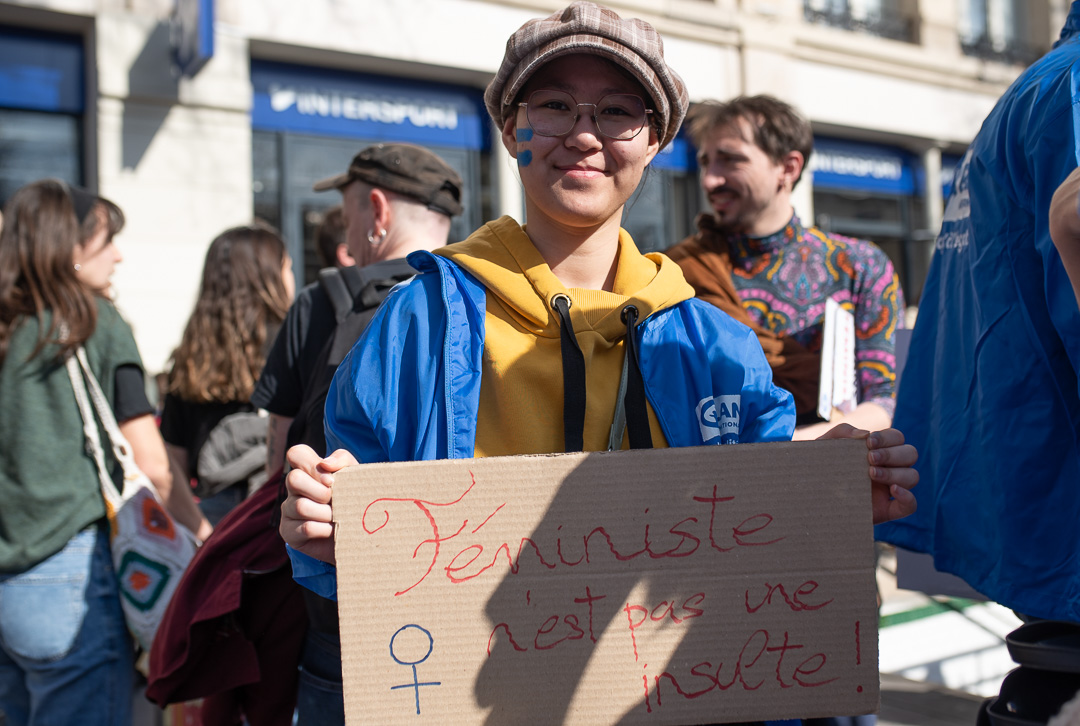 INTERSPORT
INTERSPORT
Féministe
n'est pas une
insulte !